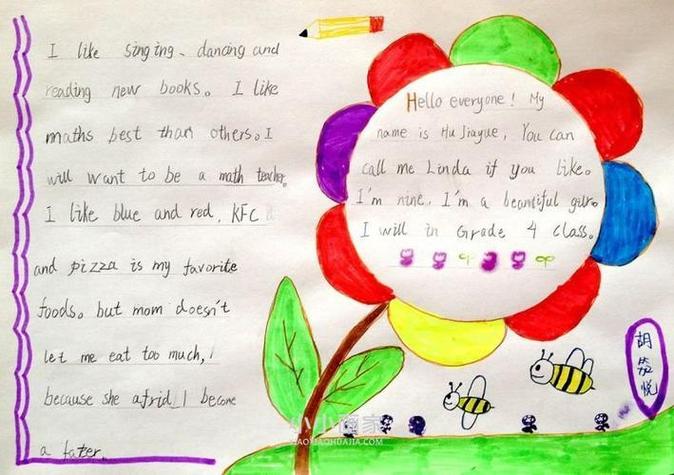 I like singing、dancing and
reading new books。I like
maths best than others。I
will want to be a math teacher。
I like blue and red, KFC
and pizza is my favorite
foods。but mom doesn't
let me eat too much,
because she afrid I become
a fater.
Hello everyone! My
name is Hu Jiayue, You can
call me Linda if you like。
I'm nine, I'm a beautiful
I will in Grade 4 class。
胡
悦
小小画家
XIAOXIAOHUAJIA.COM